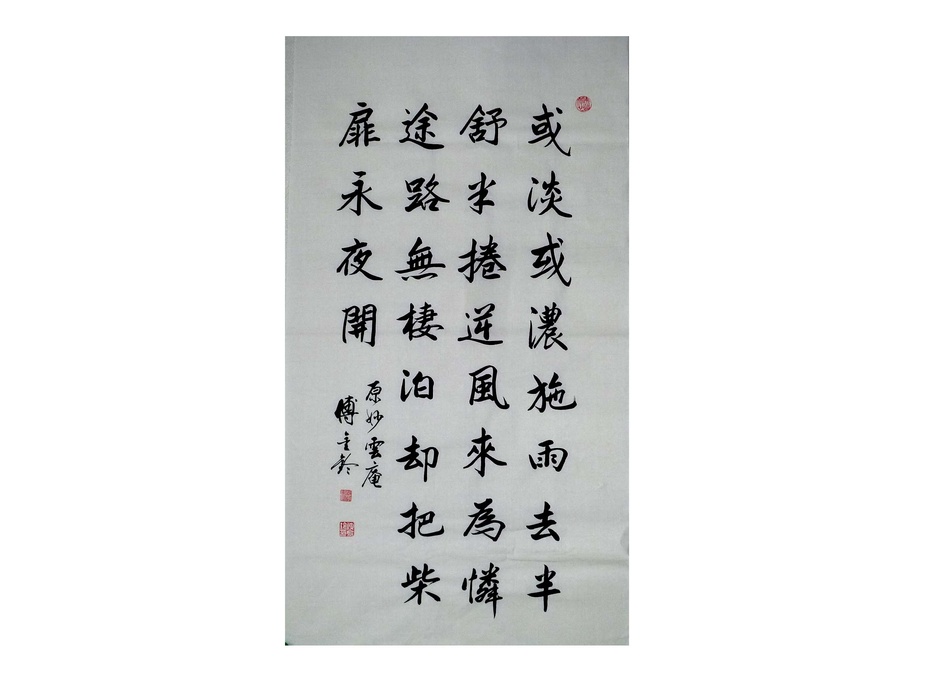 或淡或濃拖雨去半
舒半捲逆風來為憐
途路無棲泊却把柴
扉永夜開
原妙雲庵
傅金